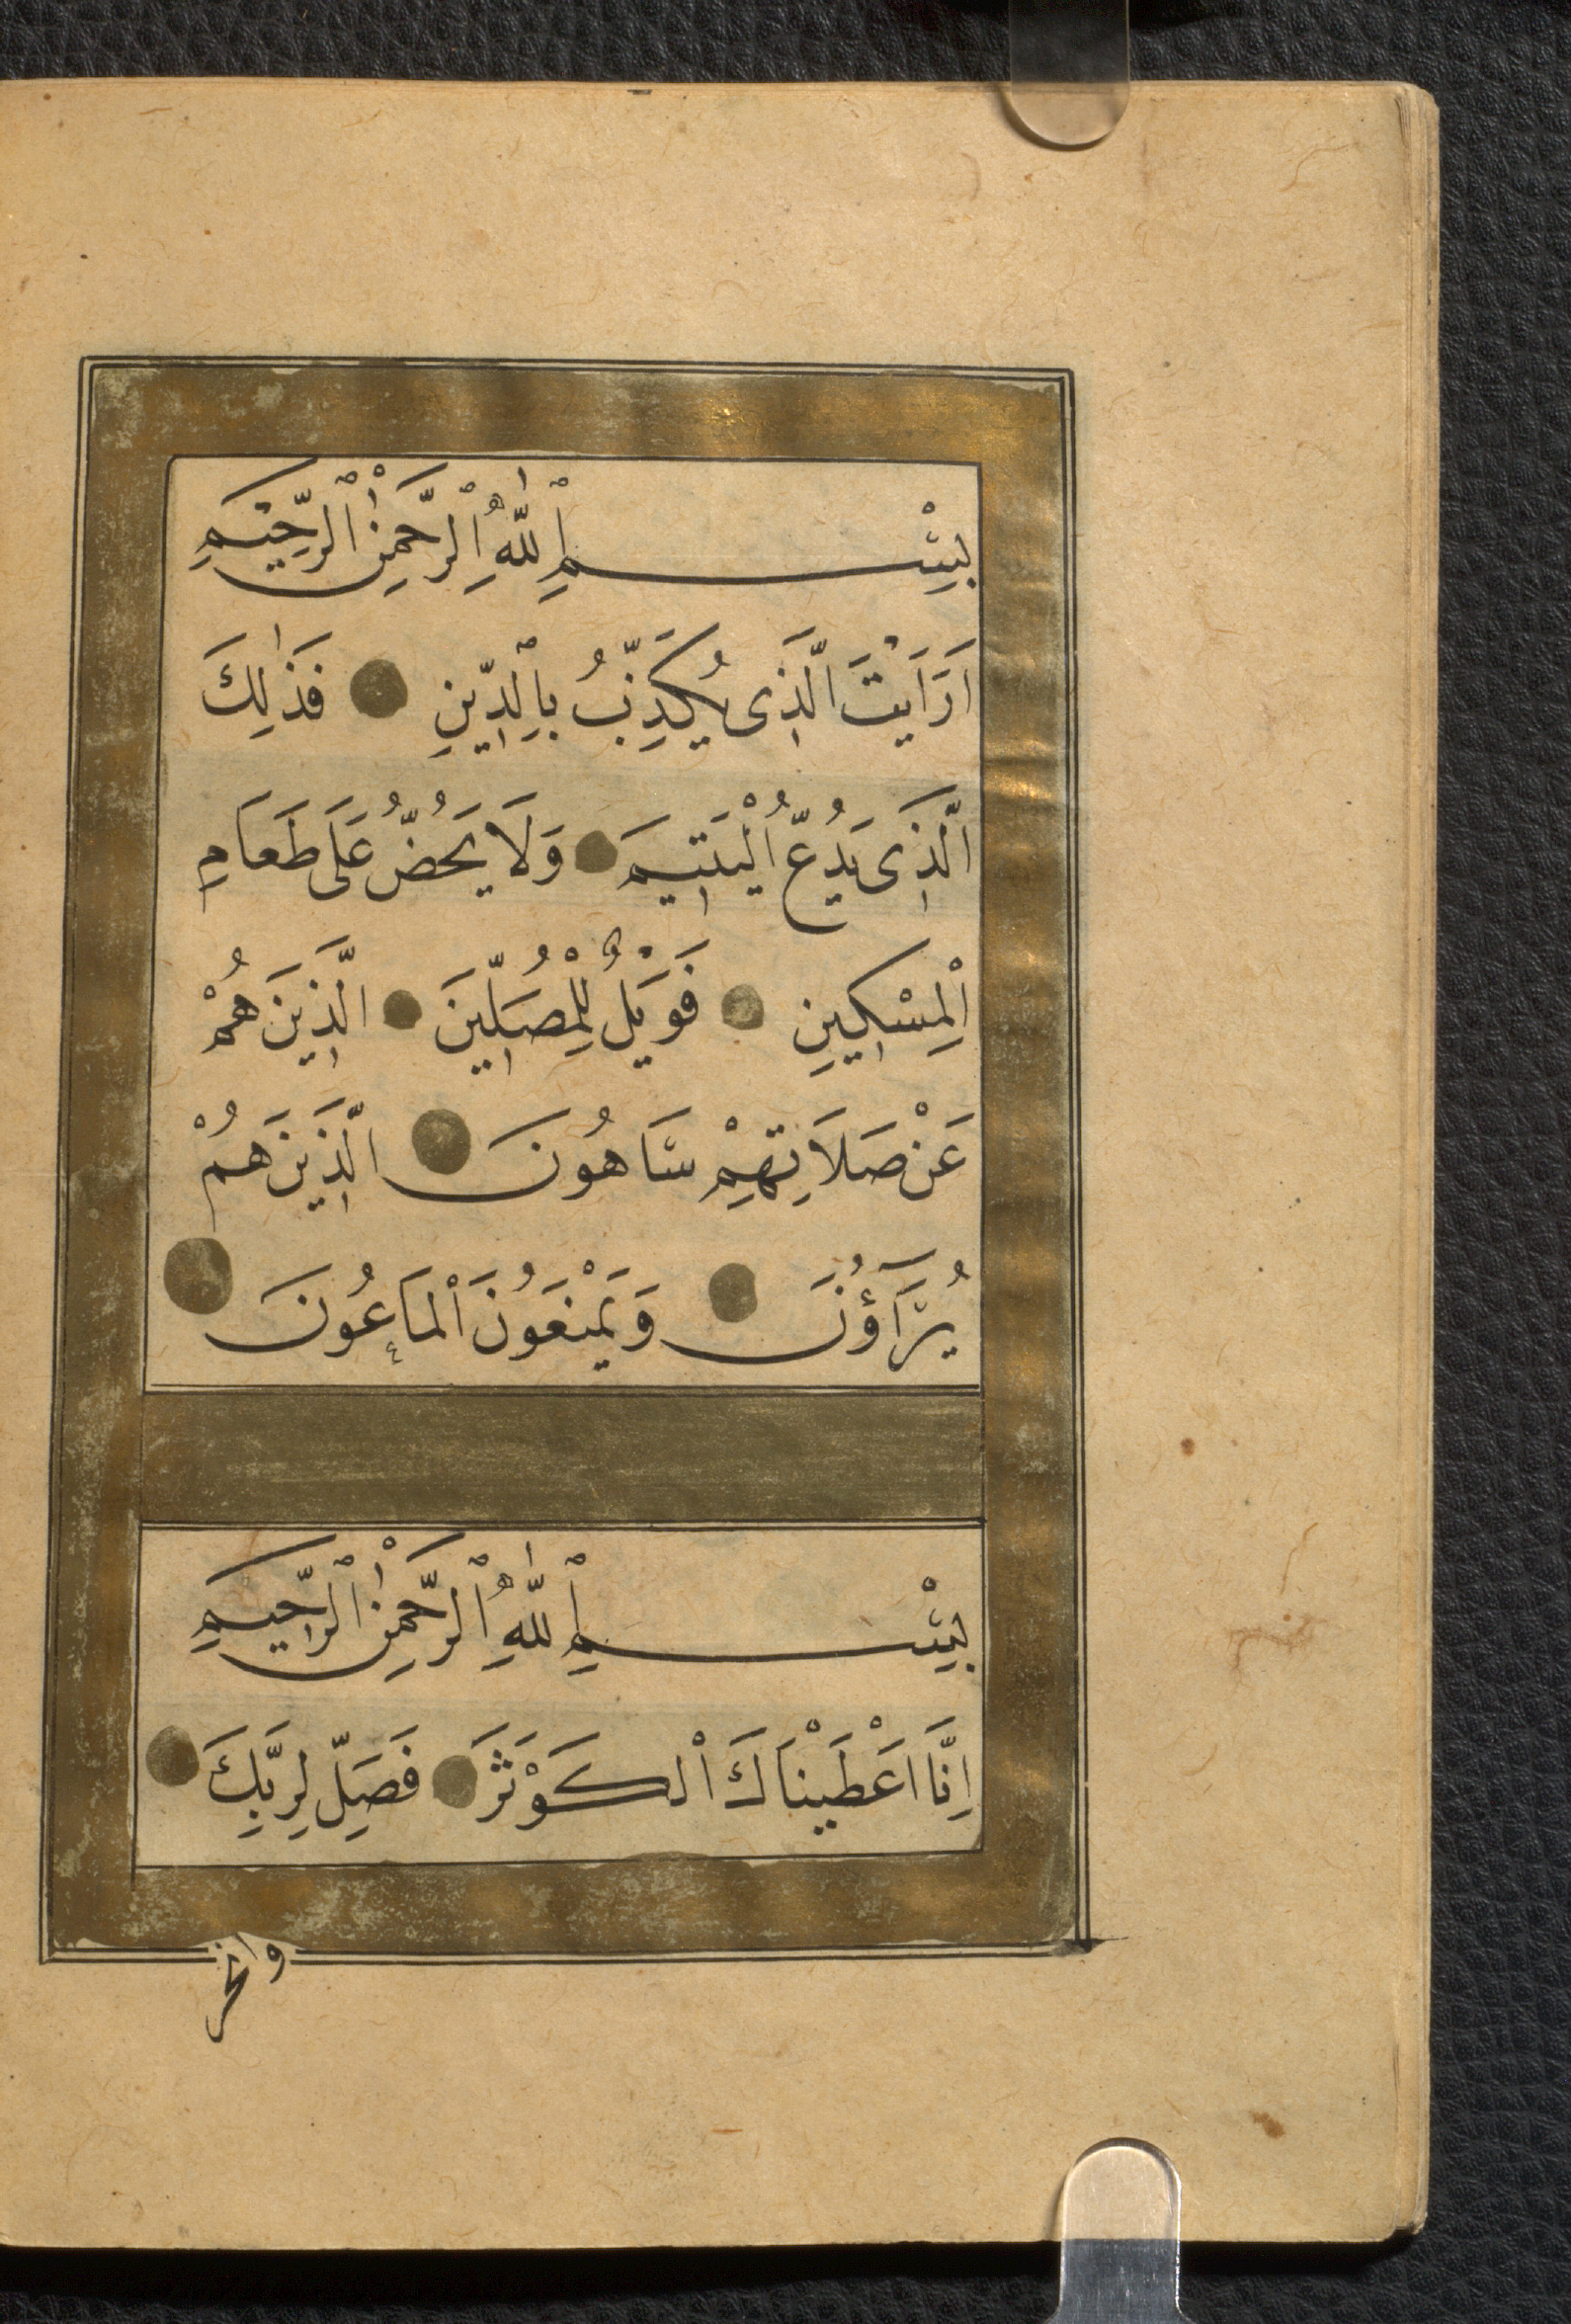 بِسْمِ اللّٰهِ الرَّحْمٰنِ الرَّحِيمِ
اَرَاَيْتَ الَّذِى يُكَذِّبُ بِالدِّينِ فَذٰلِكَ
الَّذِى يَدُعُّ الْيَتِيمَ وَلَا يَحُضُّ عَلَى طَعَامِ
الْمِسْكِينِ فَوَيْلٌ لِلْمُصَلِّينَ الَّذِينَ هُمْ
عَنْ صَلَاتِهِمْ سَاهُونَ الَّذِينَ هُمْ
يُرَآؤُنَ وَيَمْنَعُونَ الْمَاعُونَ
بِسْمِ اللّٰهِ الرَّحْمٰنِ الرَّحِيمِ
اِنَّا اَعْطَيْنَاكَ الْكَوْثَرَ فَصَلِّ لِرَبِّكَ
وانحر